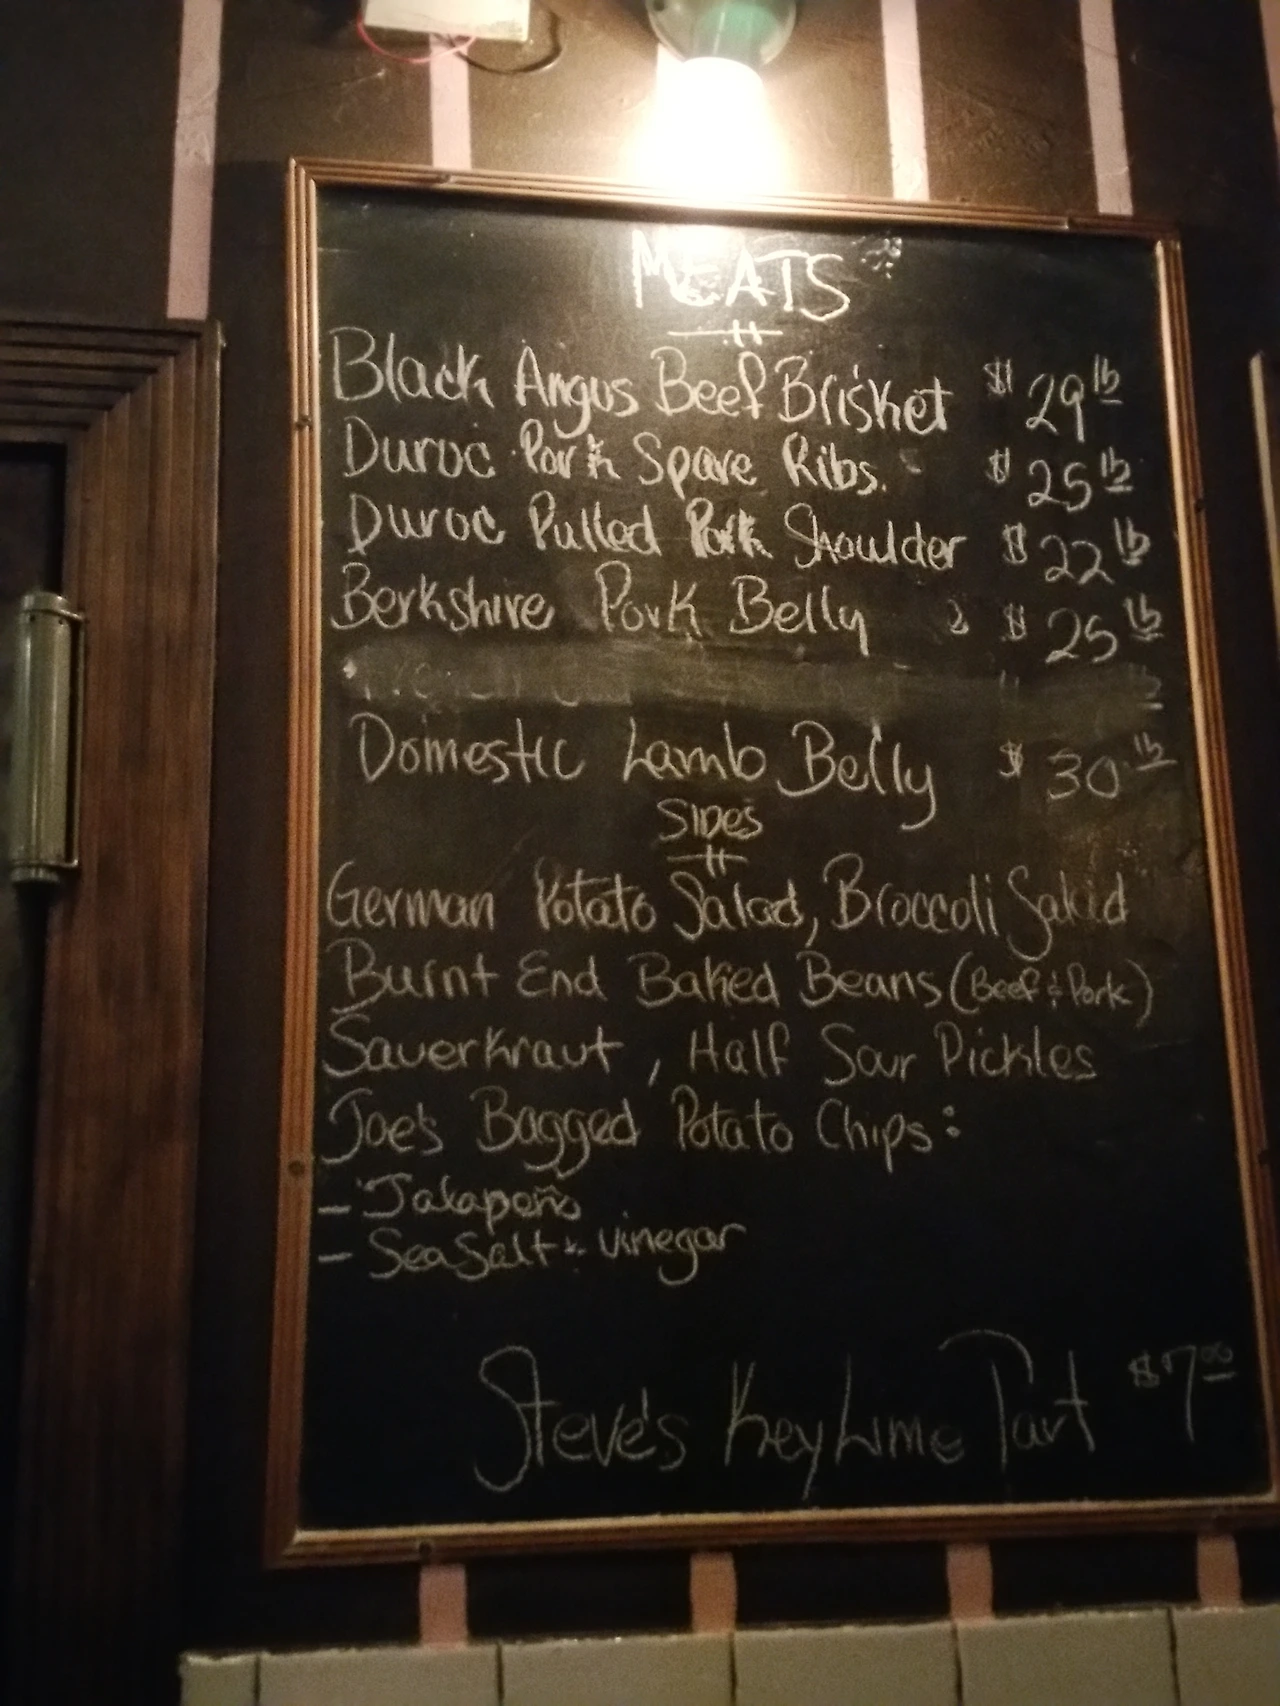 MEATS
Black Angus Beef Brisket $29 lb
Duroc Pork Spare Ribs. $25 lb
Duroc Pulled Pork Shoulder $22 lb
Berkshire Pork Belly $25 lb
Domestic Lamb Belly $30 lb
SIDES
German Potato Salad, Broccoli Salad
Burnt End Baked Beans (Beef & Pork)
Sauerkraut, Half Sour Pickles
Joe's Bagged Potato Chips:
- Jalapeño
- Sea Salt & Vinegar
Steve's Key Lime Tart $7.00